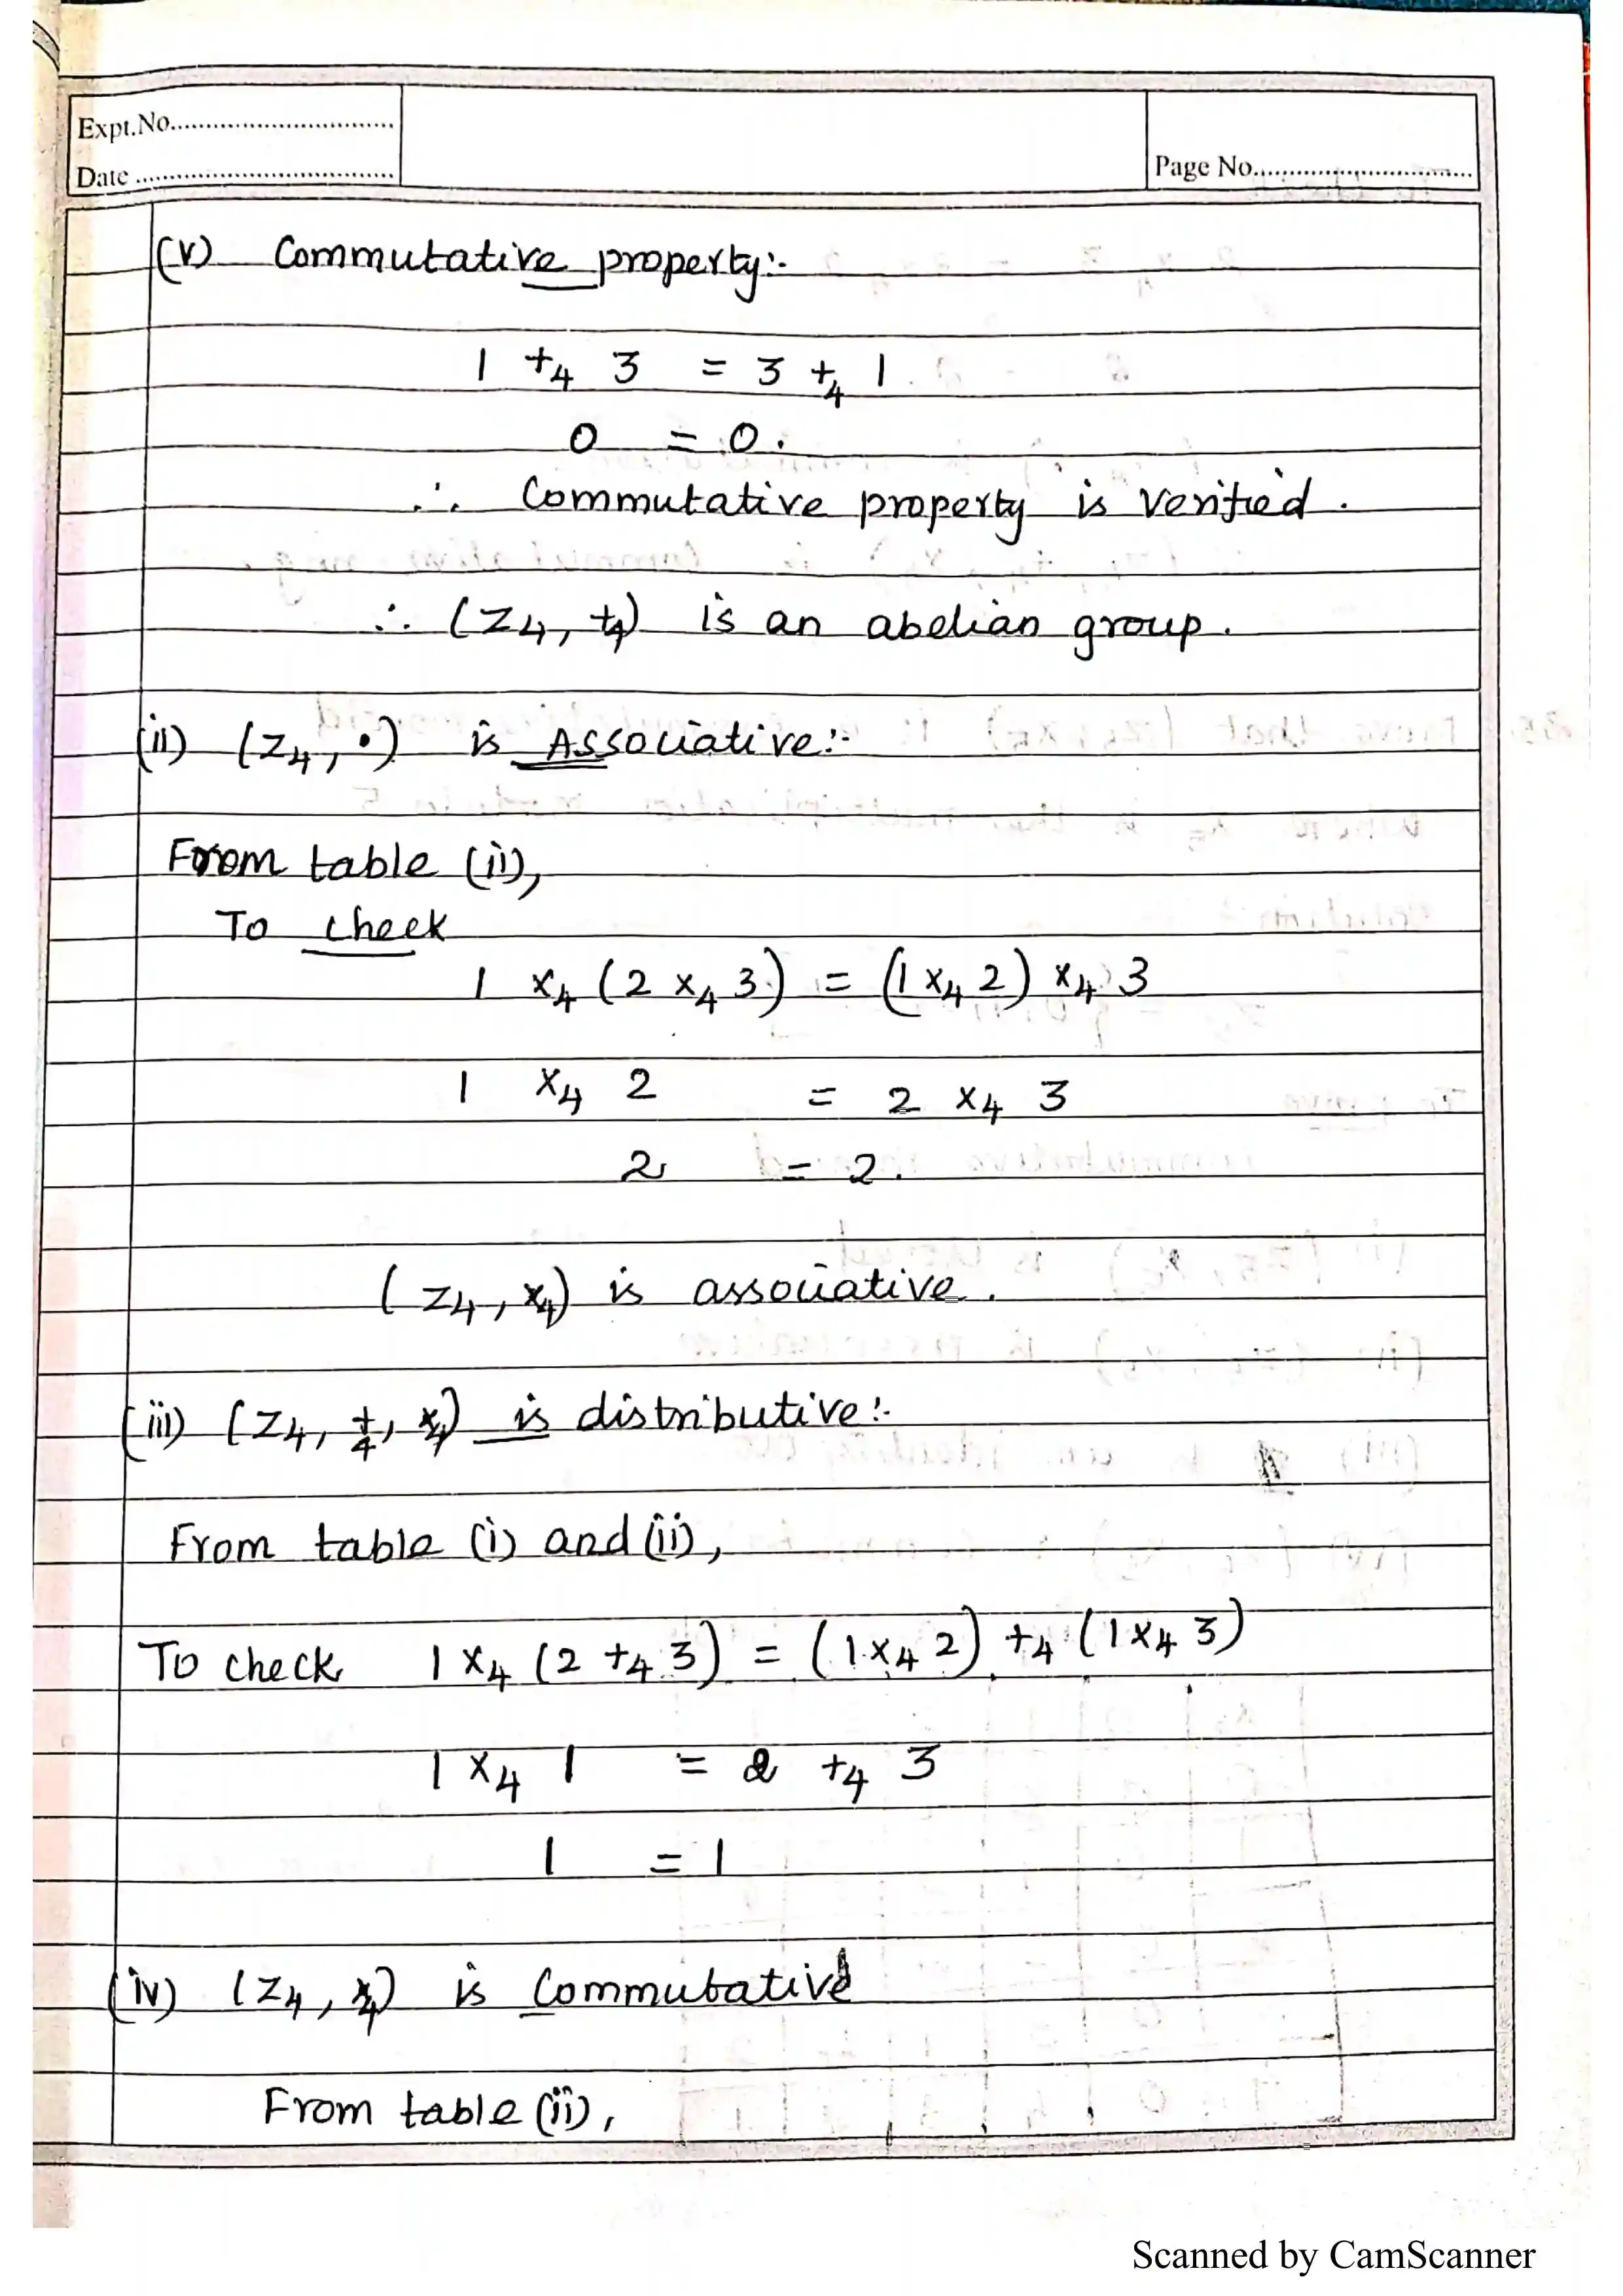 Expt.No..............................
Date ....................................
Page No..............................
(v) Commutative property:-
1 +₄ 3 = 3 +₄ 1
0 = 0.
∴ Commutative property is verified.
∴ (Z₄, +₄) is an abelian group.
(ii) (Z₄, •) is Associative:-
From table (ii),
To check
1 ×₄ (2 ×₄ 3) = (1 ×₄ 2) ×₄ 3
1 ×₄ 2 = 2 ×₄ 3
2 = 2.
(Z₄, ×₄) is associative.
(iii) (Z₄, +₄, ×₄) is distributive:-
From table (i) and (ii),
To check 1 ×₄ (2 +₄ 3) = (1 ×₄ 2) +₄ (1 ×₄ 3)
1 ×₄ 1 = 2 +₄ 3
1 = 1
(iv) (Z₄, ×₄) is Commutative
From table (ii),
Scanned by CamScanner